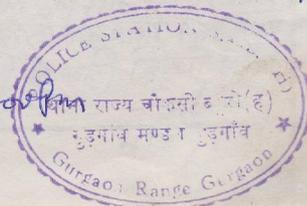 POLICE STATION
थाना राज्य चौकसी ब्यूरो (ह)
गुड़गांव मण्डल गुड़गाँव
Gurgaon Range Gurgaon